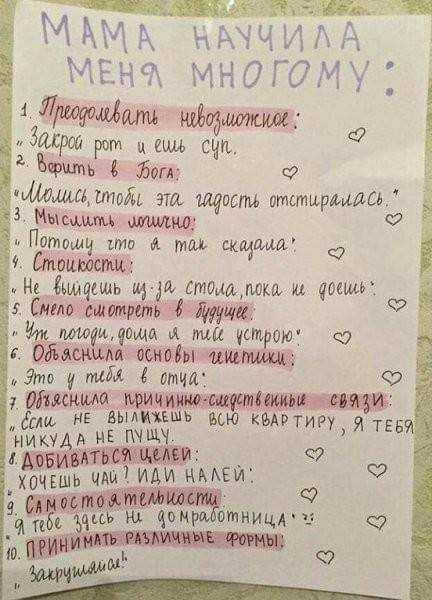 МАМА НАУЧИЛА
МЕНЯ МНОГОМУ:
1. Преодолевать невозможное:
„Закрой рот и ешь суп.
2. Верить в Бога:
„Молись, чтобы эта гадость отстиралась."
3. Мыслить логично:
„Потому что я так сказала".
4. Стойкости:
„Не выйдешь из-за стола, пока не доешь".
5. Смело смотреть в будущее:
„Уж погоди, дома я тебе устрою"
6. Объяснила основы генетики:
„Это у тебя в отца".
7. Объяснила причинно-следственные связи:
„Если не вылижешь всю квартиру, я тебя
никуда не пущу.
8. Добиваться целей:
„Хочешь чай? Иди налей".
9. Самостоятельности
"Я тебе здесь не домработница"
10. Принимать различные формы:
„Закругляйся!"